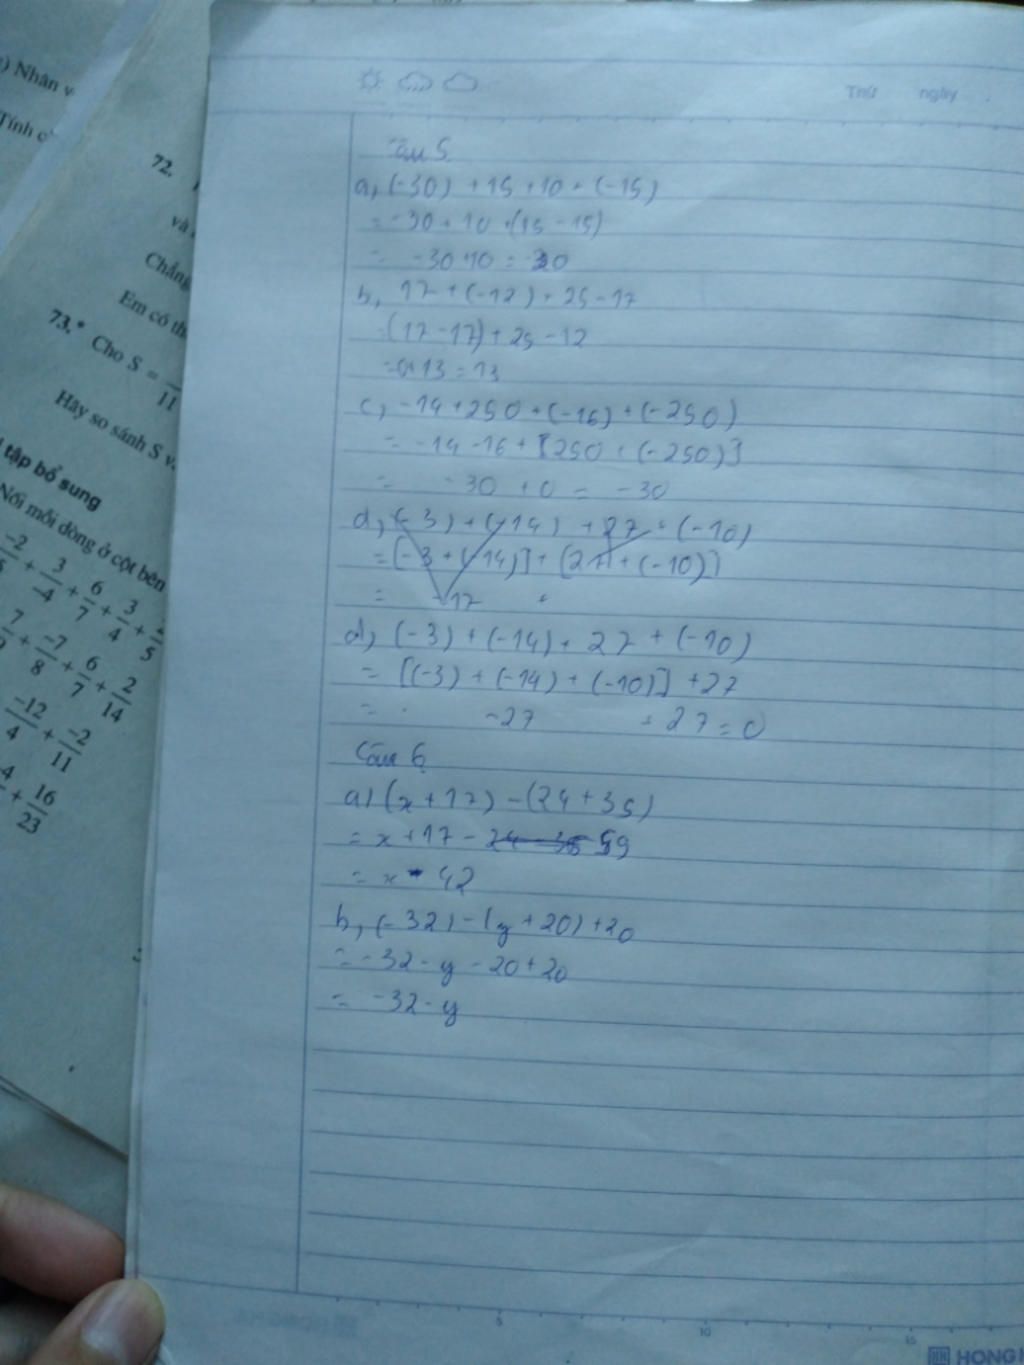 Nhân v
Tính c
72.
và
Chẳng
Em có th
73.* Cho S =
11
Hãy so sánh S v
tập bổ sung
Nối mỗi dòng ở cột bên
-2/5 + 3/-4 + 6/7 + 3/4 + 2/5
7/9 + -7/8 + 6/7 + 2/14
-12/4 + -2/11
-4 + 16/23
Thứ ngày
Câu 5
a, (-30) + 15 + 10 + (-15)
= -30 + 10 + (15 - 15)
= -30 + 10 = -20
b, 17 + (-12) + 25 - 17
= (17 - 17) + 25 - 12
= 0 + 13 = 13
c, -14 + 250 + (-16) + (-250)
= -14 - 16 + [250 + (-250)]
= -30 + 0 = -30
d, (-3) + (-14) + 27 + (-10)
= [-3 + (-14)] + [27 + (-10)]
= -17 +
d, (-3) + (-14) + 27 + (-10)
= [(-3) + (-14) + (-10)] + 27
= -27 + 27 = 0
Câu 6
a) (x + 17) - (24 + 35)
= x + 17 - 24 - 35 59
= x - 42
b, (-32) - (y + 20) + 20
= -32 - y - 20 + 20
= -32 - y
5 10 15
HONG